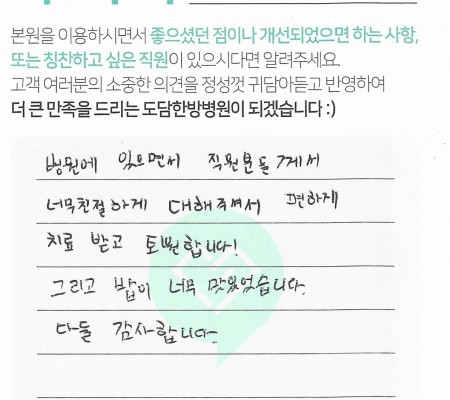 본원을 이용하시면서 좋으셨던 점이나 개선되었으면 하는 사항,
또는 칭찬하고 싶은 직원이 있으시다면 알려주세요.
고객 여러분의 소중한 의견을 정성껏 귀담아듣고 반영하여
더 큰 만족을 드리는 도담한방병원이 되겠습니다 :)
병원에 있으면서 직원분들께서
너무친절하게 대해주셔서 편하게
치료 받고 토원합니다!
그리고 밥이 너무 맛있었습니다.
다들 감사합니다.